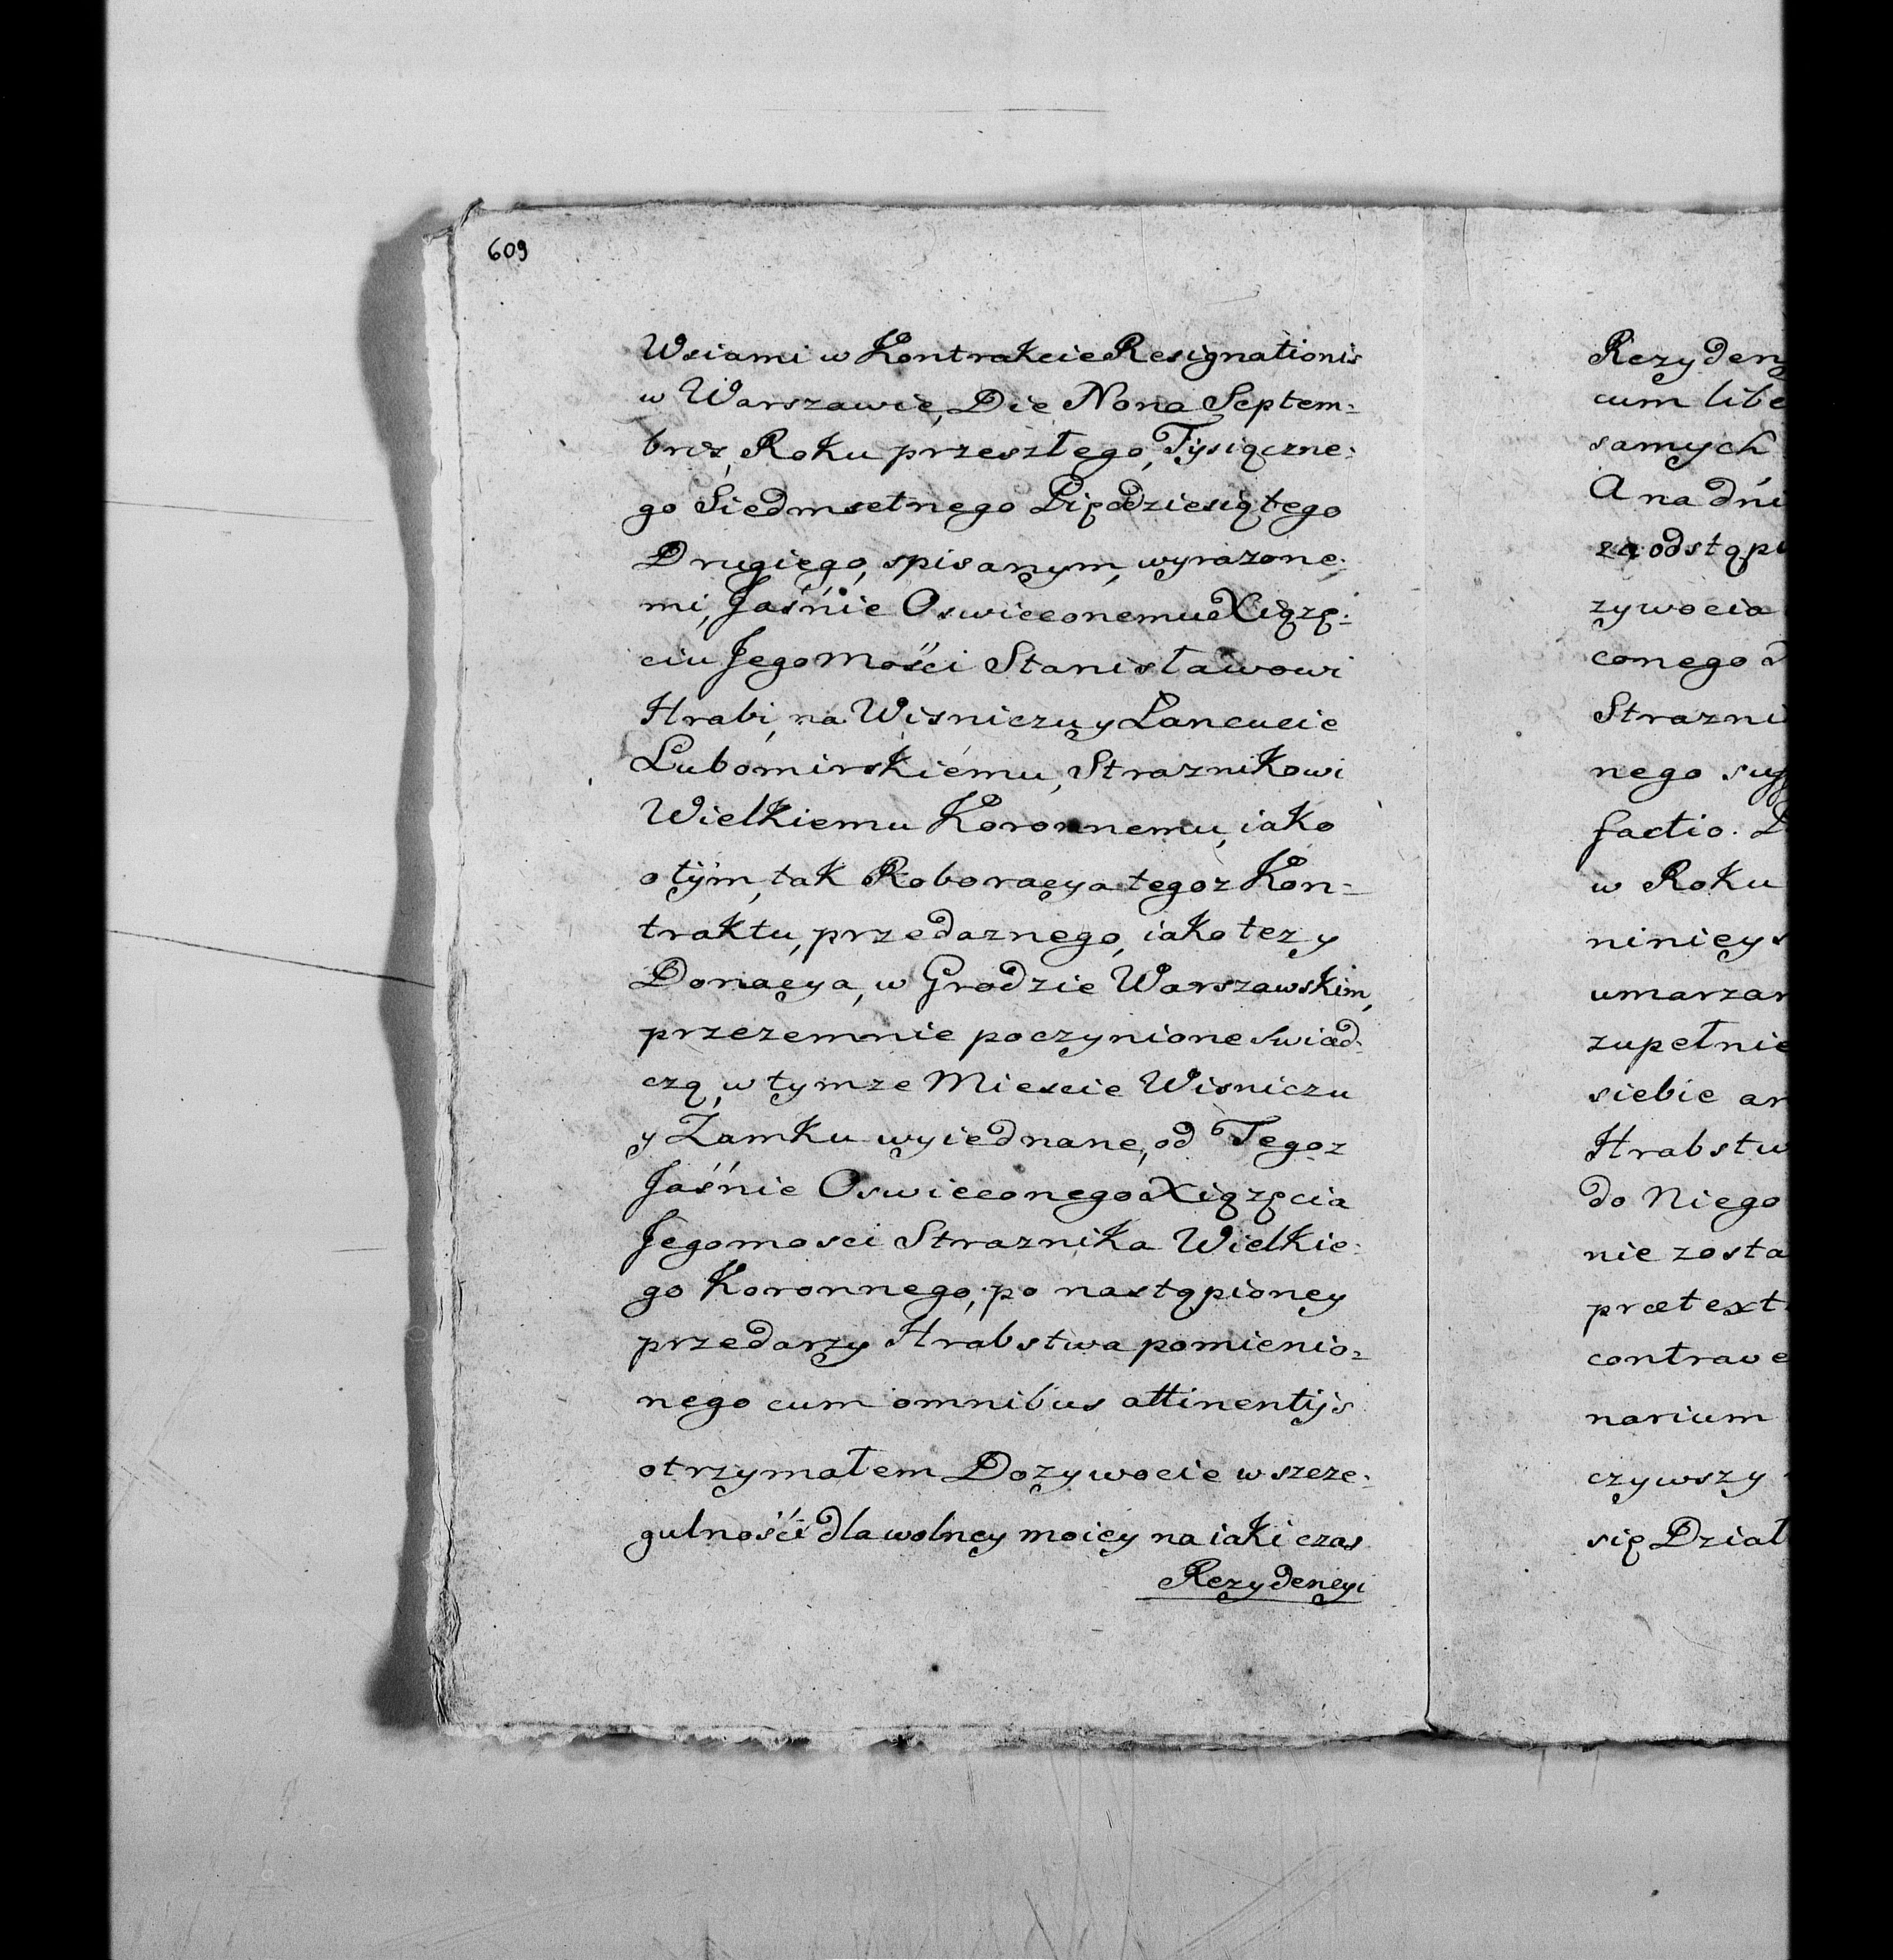 609
Wsiami w Kontrakcie Resignationis
w Warszawie, Die Nona Septem=
bris, Roku przeszłego, Tysiączne=
go Siedmsetnego Pięćdziesiątego
Drugiego, spisanym, wyrazone=
mi, Jaśnie Oswieconemu Xiązę=
ciu Jegomości Stanisławowi
Hrabi, na Wisniczu y Lancucie
Lubomirskiemu, Straznikowi
Wielkiemu Koronnemu, iako
o tym, tak Roboracya tegoz Kon=
traktu, przedaznego, iako tez y
Donacya, w Grodzie Warszawskim,
przezemnie poczynione swiad=
czą, w tymze Miescie Wisniczu
y Zamku wyiednane, od Tegoz
Jaśnie Oswieconego Xiązęcia
Jegomosci Straznika Wielkie=
go Koronnego, po nastąpioney
przedarzy Hrabstwa pomienio=
nego cum omnibus attinentijs
otrzymałem Dozywocie w szcze=
gulności dla wolney moiey na iaki czas
Rezydencyi
Rezyden
cum libe
samych
A na dni
za odstąpi
zywocia
conego
Strazni
nego sup
factio.
w Roku
ninieys
umarzan
zupełnie
siebie an
Hrabstw
do Niego
nie zosta
prætext
contrave
narium
czywszy
się Dział